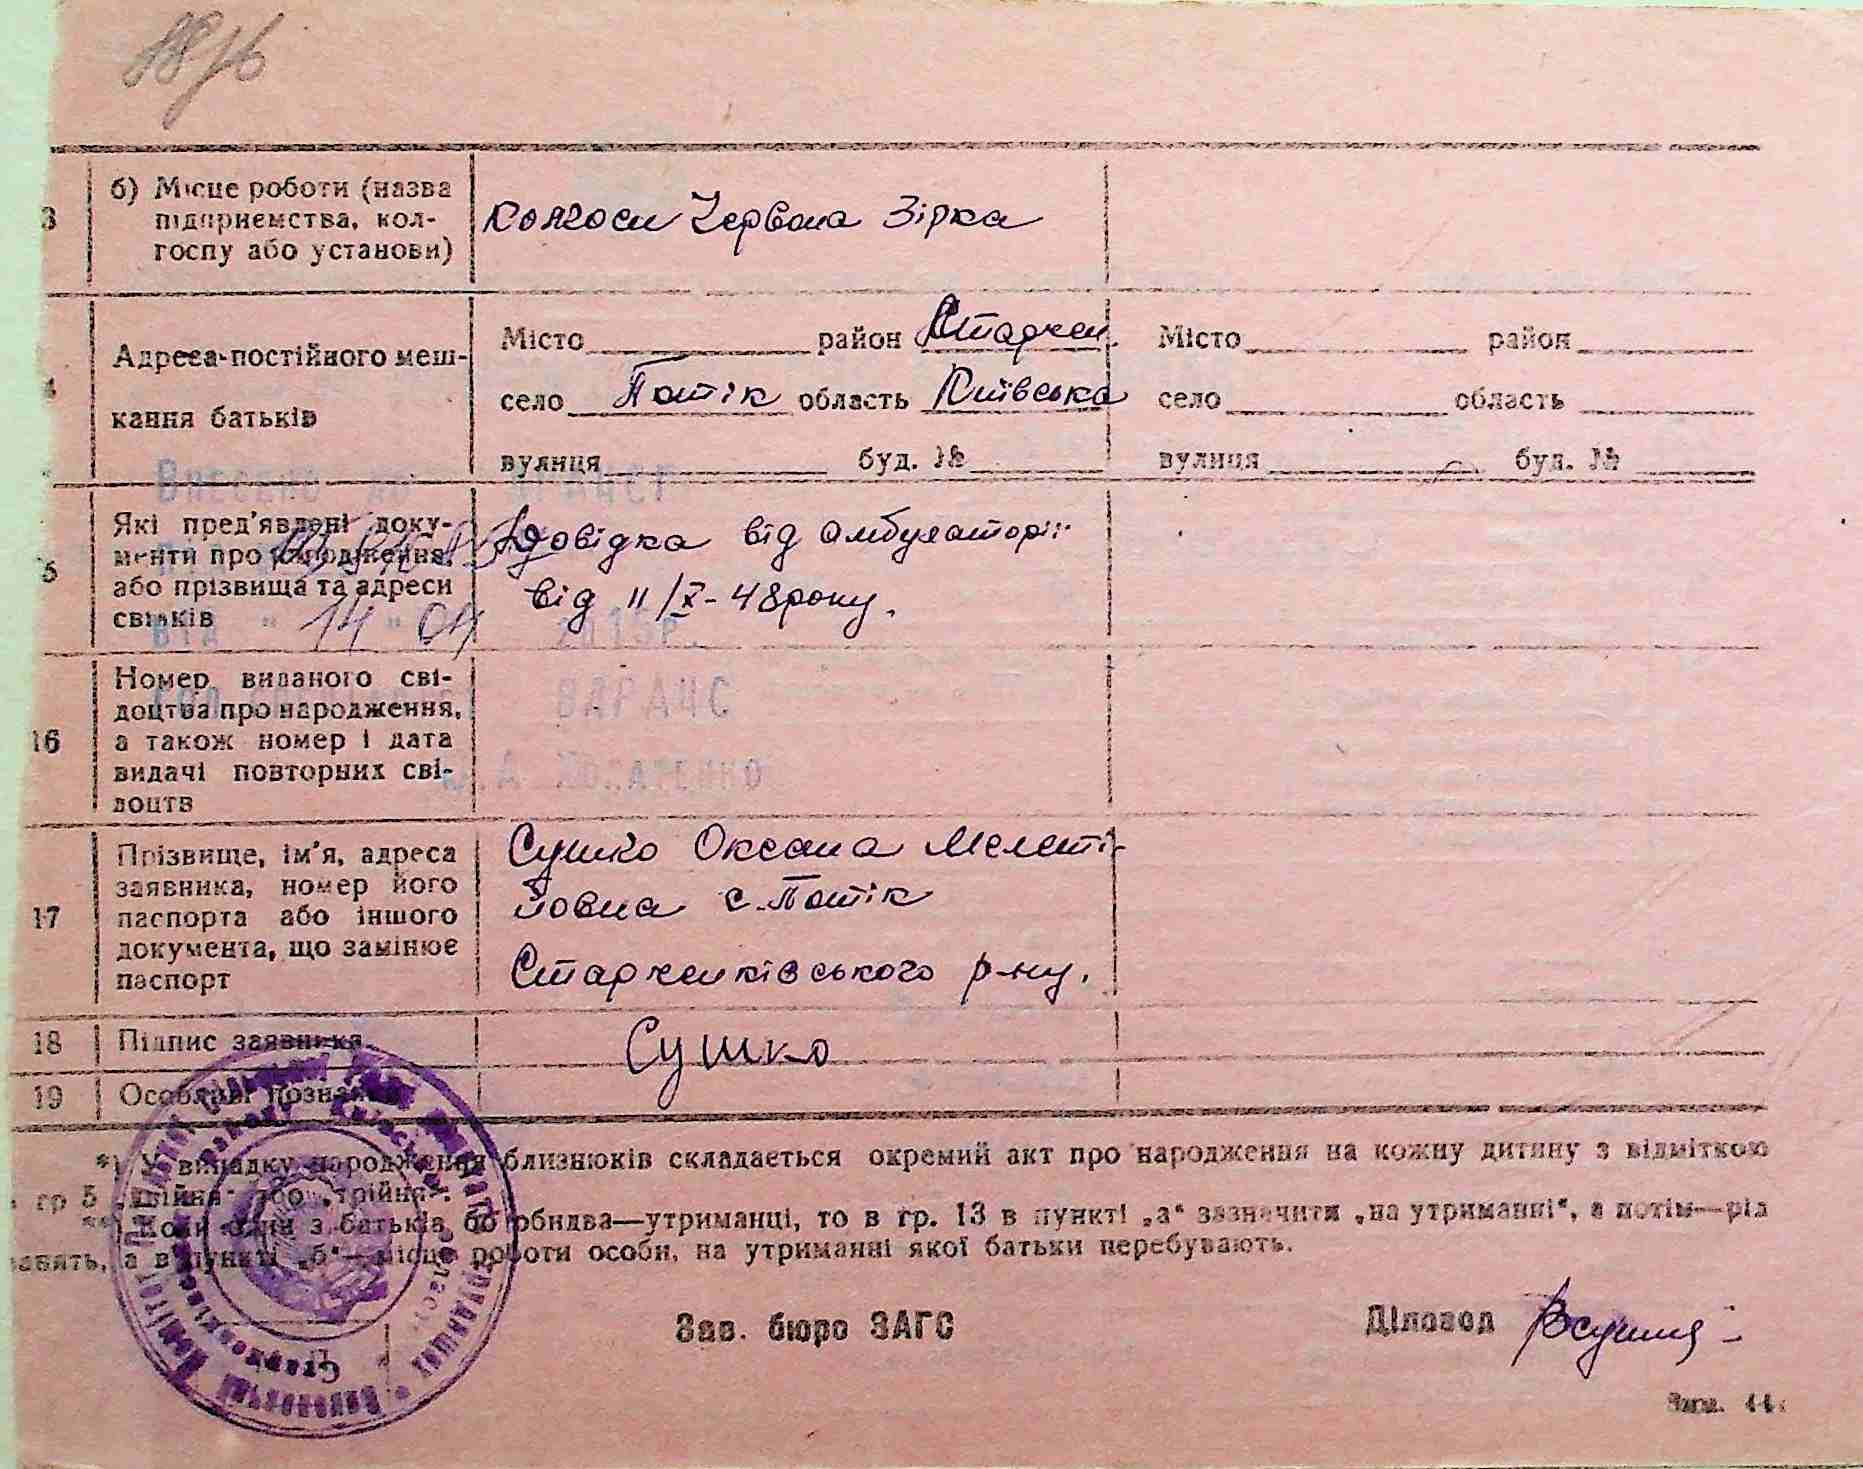 3
б) Місце роботи (назва
підприємства, кол-
госпу або установи)
колгосп Червона Зірка
4
Адреса постійного меш-
кання батьків
Місто район Старчен.
село Потік область Київська
вулиця буд. №
Місто район
село область
вулиця буд. №
Внесено до ДРАЦСГ
5
Які пред'явлені доку-
менти про народження,
або прізвища та адреси
свідків
Довідка від амбулаторії
від 11/X-48 року.
від "14" 04 2015р.
16
Номер виданого сві-
доцтва про народження,
а також номер і дата
видачі повторних сві-
доцтв
ВДРАЦС
17
Прізвище, ім'я, адреса
заявника, номер його
паспорта або іншого
документа, що замінює
паспорт
Сушко Оксана Мелеті-
йовна с. Потік
Старченківського р-ну.
18
Підпис заявника
Сушко
19
Особливі познач
*) У випадку народження близнюків складається окремий акт про народження на кожну дитину з відміткою
гр 5 „двійня“ або „трійня“.
**) Коли один з батьків, бо обидва—утриманці, то в гр. 13 в пункті „а“ зазначити „на утриманні“, а потім—рід
занять, а в пункті „б“—місце роботи особи, на утриманні якої батьки перебувають.
Зав. бюро ЗАГС
Діловод
Зам. 44